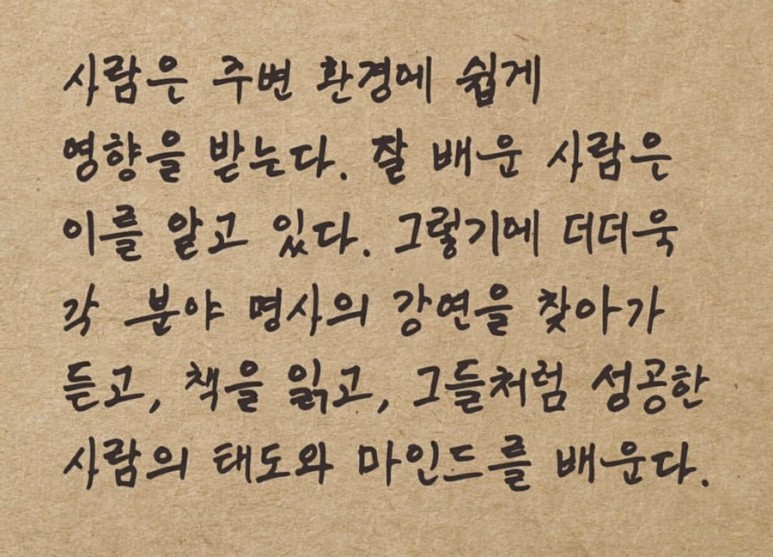 사람은 주변 환경에 쉽게
영향을 받는다. 잘 배운 사람은
이를 알고 있다. 그렇기에 더더욱
각 분야 명사의 강연을 찾아가
듣고, 책을 읽고, 그들처럼 성공한
사람의 태도와 마인드를 배운다.